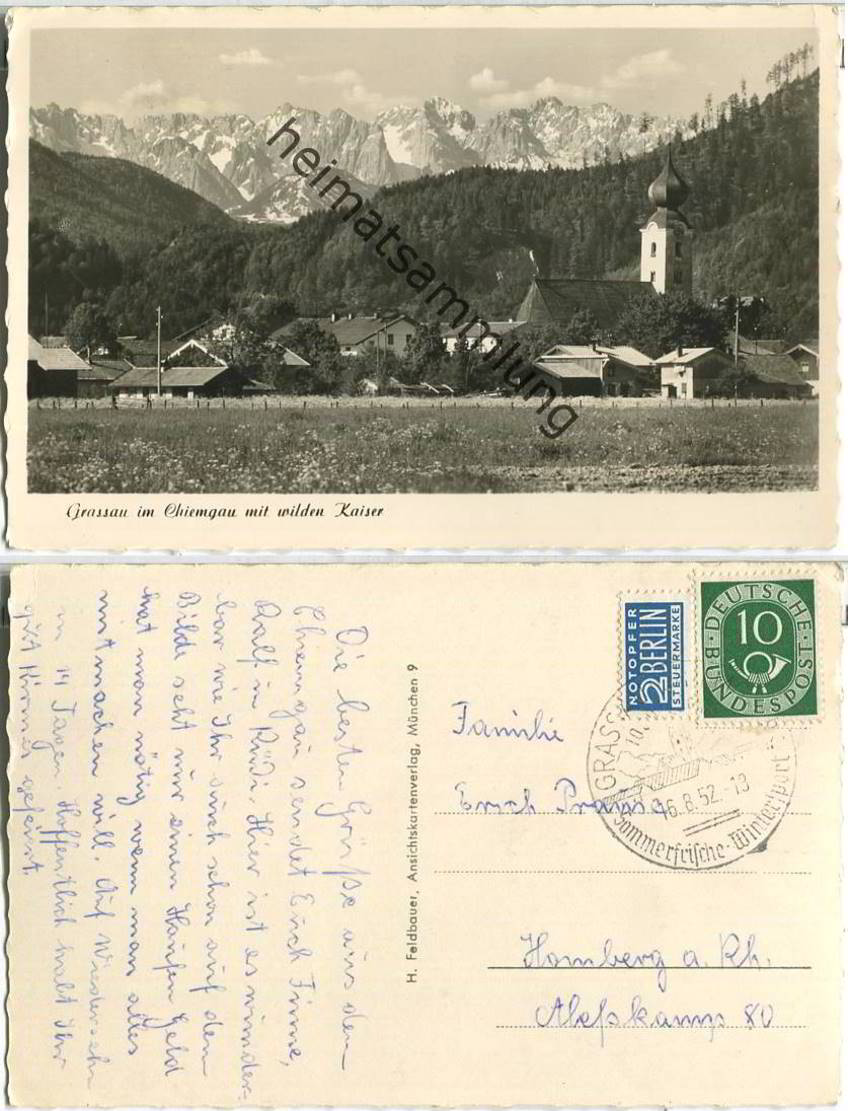 heimatsammlung
Grassau im Chiemgau mit wilden Kaiser
Die besten Grüße aus dem
Chiemgau sendet Euch Finne,
Ralf u. Rudi. Hier ist es wunder-
bar wie Ihr auch schon auf dem
Bilde seht nur einen Haufen Geld
hat man nötig wenn man alles
mitmachen will. Auf Wiedersehn
in 14 Tagen. Hoffentlich habt Ihr
gut Kirmes gefeiert.
H. Feldbauer, Ansichtskartenverlag, München 9
NOTOPFER
2 BERLIN
STEUERMARKE
DEUTSCHE
10
BUNDESPOST
GRASS
16.8.52.-13
Sommerfrische-Wintersport
Familie
Erich
Homberg a. Rh.
80